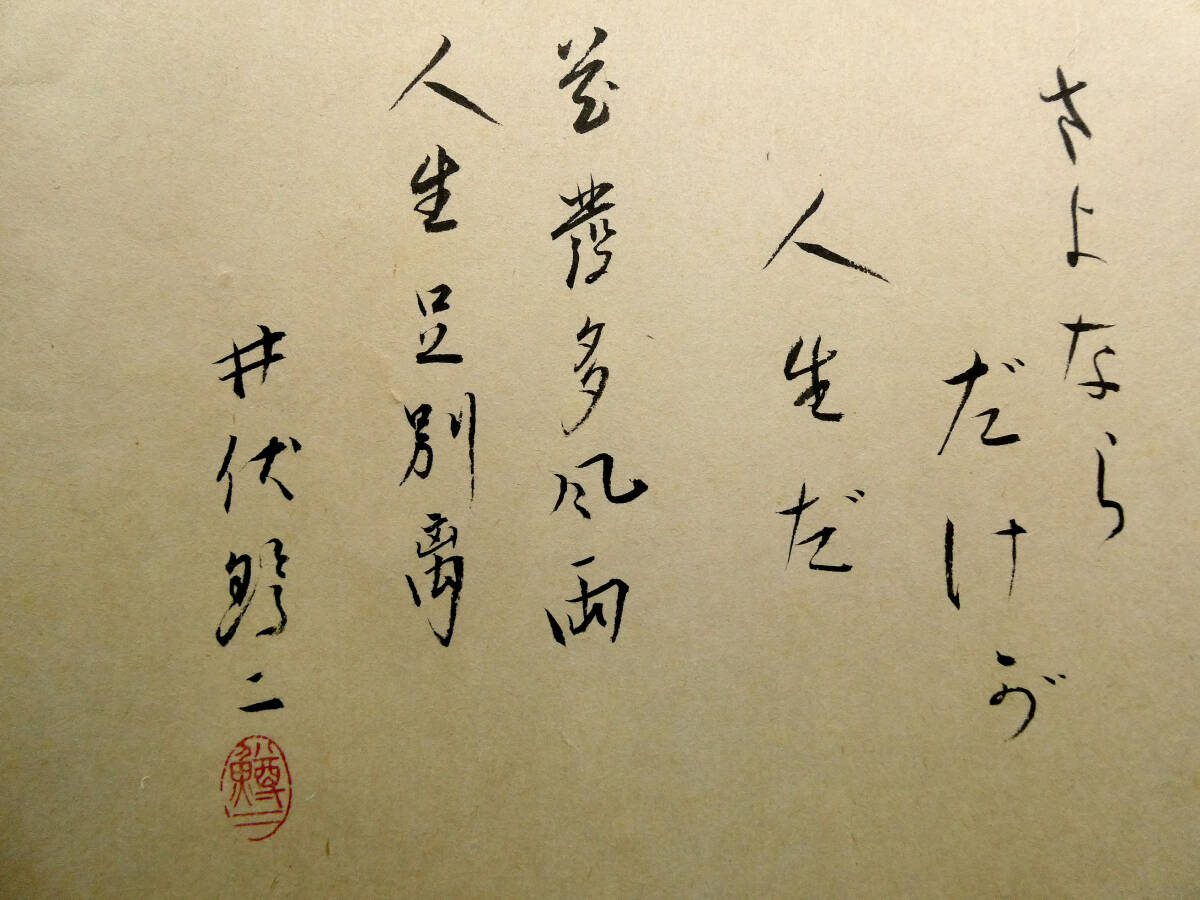 さよなら
だけが
人生だ
花發多風雨
人生足別离
井伏鱒二
鱒二